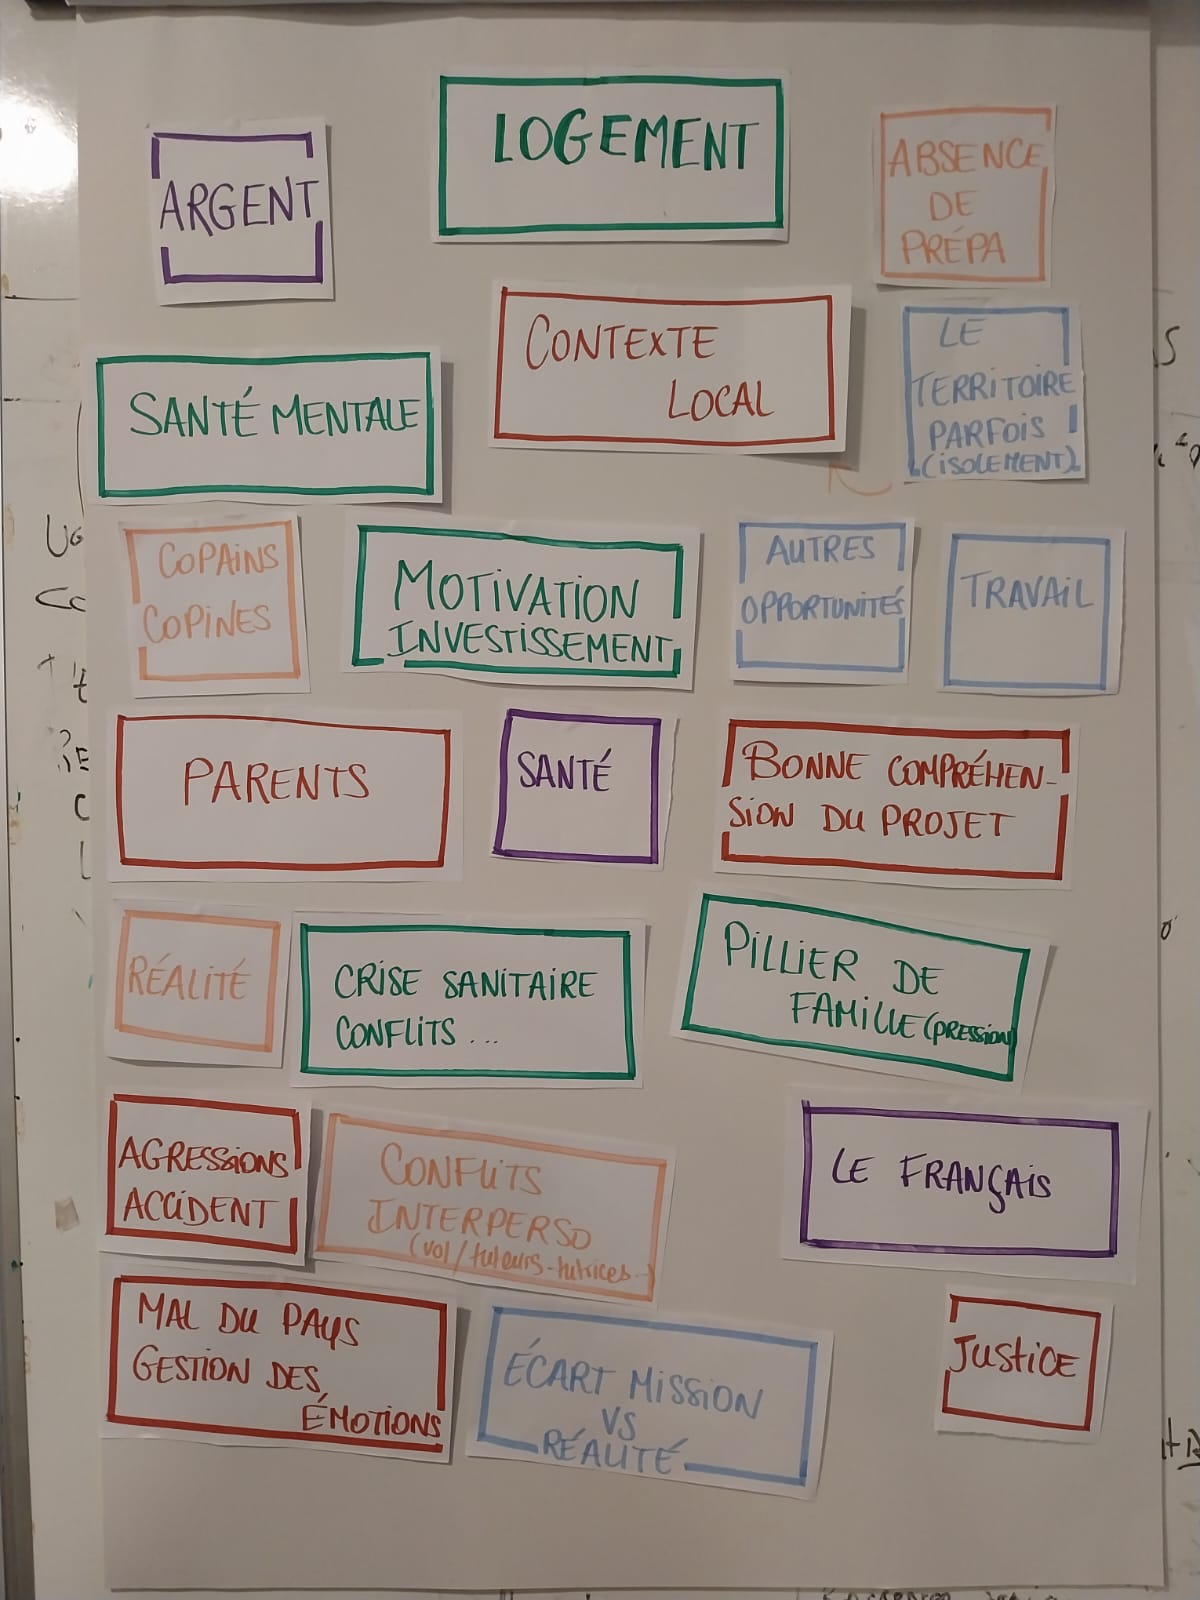 LOGEMENT
ARGENT
ABSENCE
DE
PRÉPA
CONTEXTE
LOCAL
LE
TERRITOIRE
PARFOIS
(ISOLEMENT)
SANTÉ MENTALE
COPAINS
COPINES
MOTIVATION
INVESTISSEMENT
AUTRES
OPPORTUNITÉS
TRAVAIL
PARENTS
SANTÉ
BONNE COMPRÉHEN-
SION DU PROJET
RÉALITÉ
CRISE SANITAIRE
CONFLITS ...
PILLIER DE
FAMILLE (PRESSION)
AGRESSIONS
ACCIDENT
CONFLITS
INTERPERSO
(vol/tuteurs-tutrices..)
LE FRANÇAIS
MAL DU PAYS
GESTION DES
ÉMOTIONS
ÉCART MISSION
VS
RÉALITÉ
JUSTICE